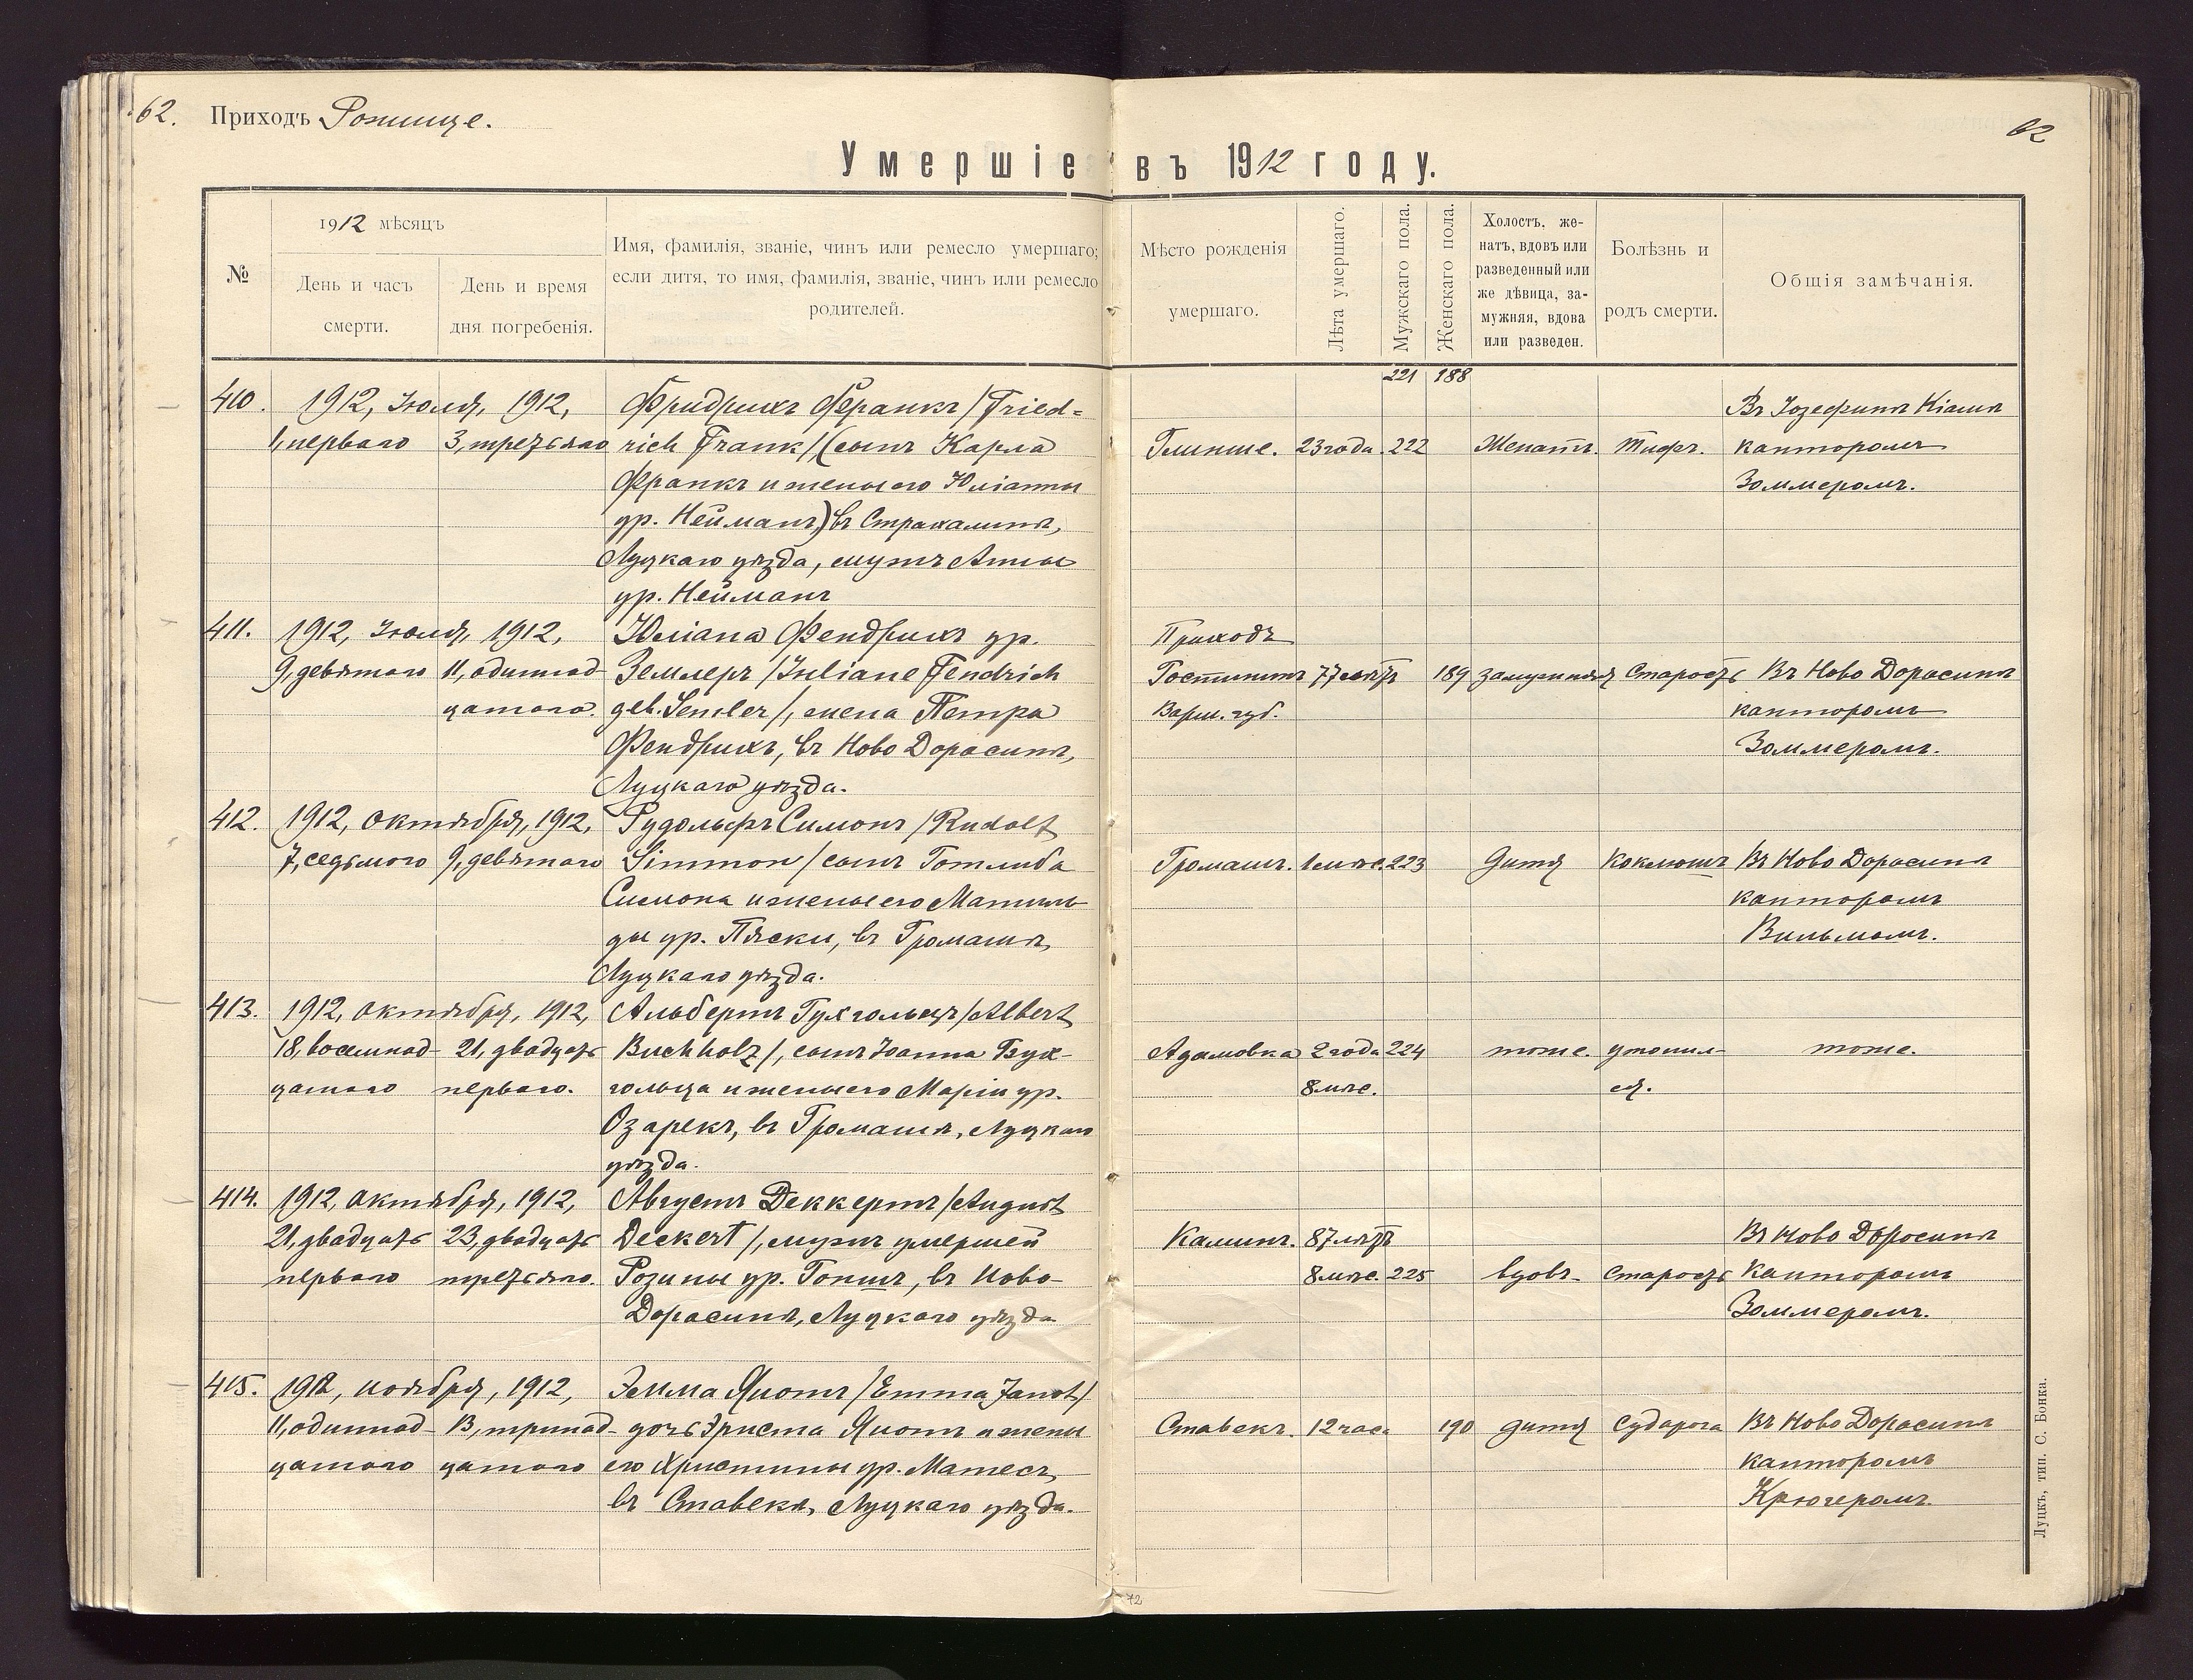 62. Приходъ Рожище.
62
Умершіе въ 1912 году.
№
1912 мѣсяцъ
День и часъ смерти.
День и время дня погребенія.
Имя, фамилія, званіе, чинъ или ремесло умершаго;
если дитя, то имя, фамилія, званіе, чинъ или ремесло
родителей.
Мѣсто рожденія
умершаго.
Лѣта умершаго.
Мужскаго пола.
Женскаго пола.
Холостъ, же-
натъ, вдовъ или
разведенный или
же дѣвица, за-
мужняя, вдова
или разведен.
Болѣзнь и
родъ смерти.
Общія замѣчанія.
221 188
410. 1912, Іюля, 1912, Фридрихъ Франкъ /Fried= Въ Іозефинѣ
1, перваго 3, третьяго rich Frank/ (сынъ Карла Глинше. 23 года. 222 Женатъ. Тифъ. канторомъ
Франкъ и жены его Юліанны Зоммеромъ.
ур. Нейманъ) въ Страхалинѣ,
Луцкаго уѣзда, мужъ Анны
ур. Нейманъ
411. 1912, Іюля, 1912, Юліана Фендрихъ ур. Приходъ
9, девятаго 11, одиннад- Землеръ /Juliane Fendrich Гостининъ 77 лѣтъ 189 замужняя Старость Въ Ново Дорасинѣ
цатаго. geb. Semler/, жена Петра Варш. губ. канторомъ
Фендрихъ, въ Ново Дорасинѣ, Зоммеромъ.
Луцкаго уѣзда.
412. 1912, Октября, 1912, Рудольфъ Симонъ /Rudolf
7, седьмого 9, девятаго Simmon/ сынъ Готлиба Громашъ. 1 мѣс. 223 Дитя Коклюшъ Въ Ново Дорасинѣ
Симона и жены его Матиль- канторомъ
ды ур. Пяски, въ Громашѣ, Вильмомъ.
Луцкаго уѣзда.
413. 1912, Октября, 1912, Альбертъ Бухгольцъ /Albert
18, восемнад- 21, двадцать Buchholz/, сынъ Іоанна Бух- Адамовка 2 года 224 тоже. утопил- тоже.
цатаго перваго. гольца и жены его Маріи ур. 8 мѣс. ся.
Озарекъ, въ Громашѣ, Луцкаго
уѣзда.
414. 1912, Октября, 1912, Августъ Деккертъ /August
21, двадцать 23, двадцать Deckert/, мужъ умершей Каминъ. 87 лѣтъ Въ Ново Доросинѣ
перваго третьяго. Розины ур. Гоншъ, въ Ново- 8 мѣс. 225 вдовъ. Старость Канторомъ
Дорасинѣ, Луцкаго уѣзда Зоммеромъ.
415. 1912, ноября, 1912, Эмма Янотъ /Emma Janot/
11, одиннад- 13, тринад- дочь Эрнста Янотъ и жены Ставекъ. 12 час. 190 дитя Судорога Въ Ново Дорасинѣ
цатаго цатаго его Христины ур. Матесъ, канторомъ
въ Ставекѣ, Луцкаго уѣзда. Крюгеромъ.
Луцкъ, тип. С. Бонка.
72